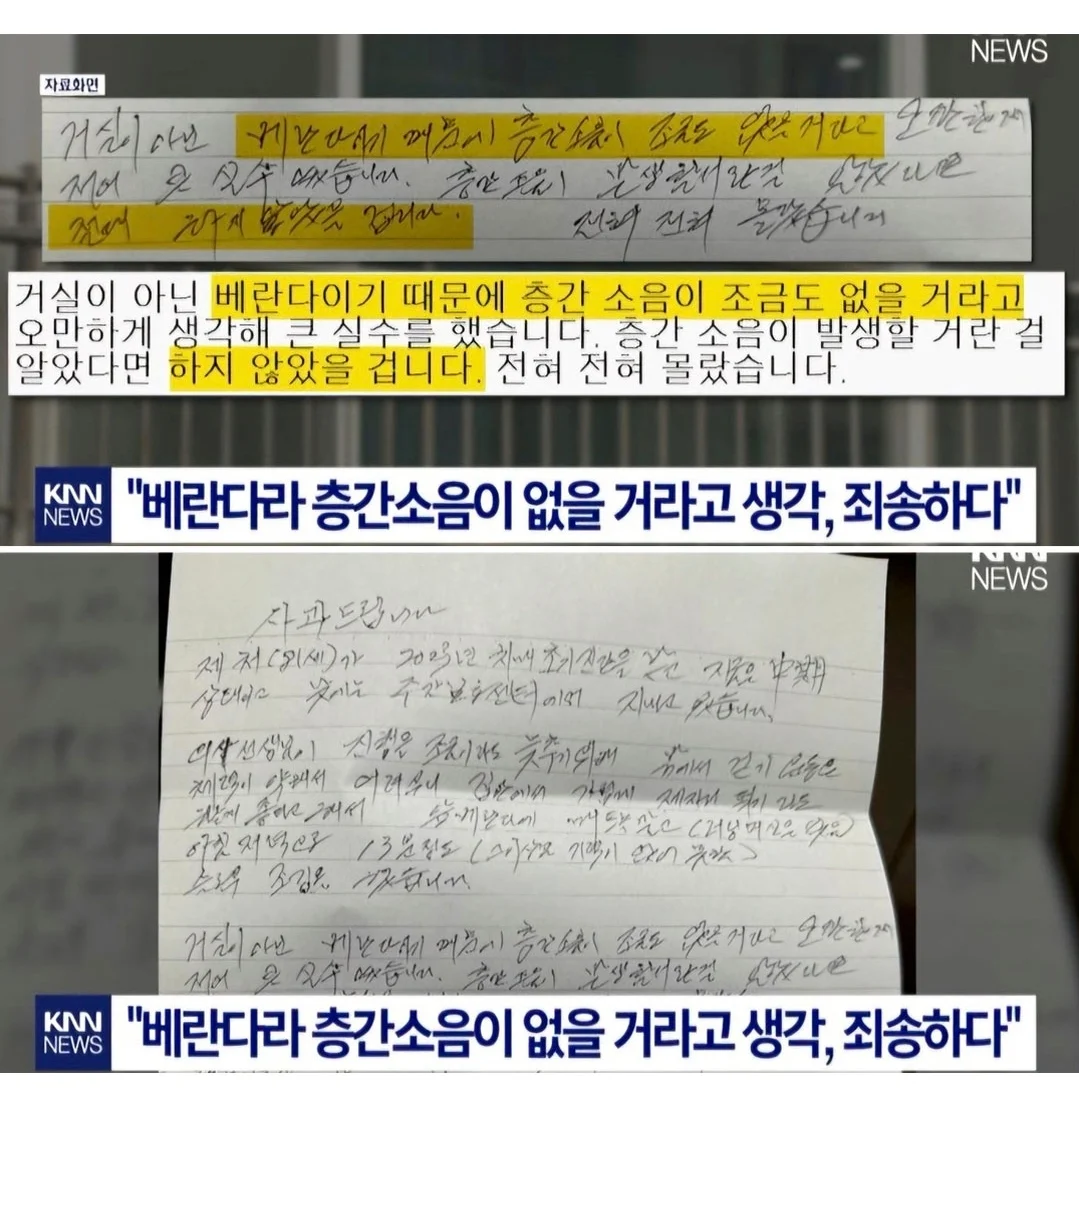 NEWS
자료화면
거실이 아닌 베란다이기 때문에 층간소음이 조금도 없을 거라고 오만하게
큰 실수 했습니다. 층간 소음이 발생할거란걸 알았다면
절대 하지 않았을 겁니다. 전혀 전혀 몰랐습니다
거실이 아닌 베란다이기 때문에 층간 소음이 조금도 없을 거라고
오만하게 생각해 큰 실수를 했습니다. 층간 소음이 발생할 거란 걸
알았다면 하지 않았을 겁니다. 전혀 전혀 몰랐습니다.
KNN
NEWS
"베란다라 층간소음이 없을 거라고 생각, 죄송하다"
KNN
NEWS
사과드립니다
제 처가 2023년 치매 초기진단을 받고 지금은
상태이고 낮에는 주간보호센터에서 지내고 있습니다.
의사선생님이 진행은 조금이라도 늦추기위해 밖에서 걷기 운동은
체력이 약해서 어려우니 집안에서 가볍게 제자리 뛰기라도
좋다고 그래서
아침 저녁으로 13분정도
조깅을 했습니다.
거실이 아닌 베란다이기 때문에 층간소음이 조금도 없을 거라고 오만하게
큰 실수 했습니다. 층간 소음이 발생할거란걸 알았다면
KNN
NEWS
"베란다라 층간소음이 없을 거라고 생각, 죄송하다"